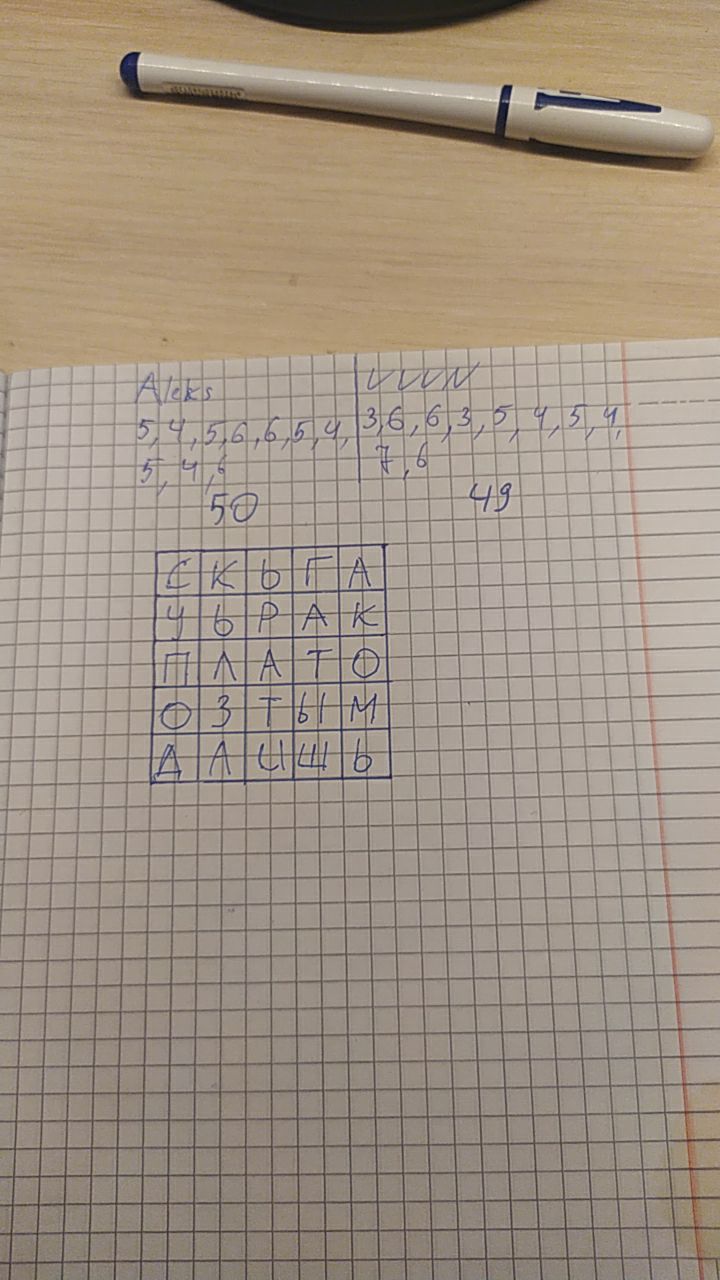 Aleks
VVVN
5, 4, 5, 6, 6, 5, 4,
3, 6, 6, 3, 5, 4, 5, 4,
5, 4, 6
7, 6
50
49
С К Ь Г А
У Ь Р А К
П Л А Т О
О З Т Ы М
Д А Ц Ш Ь